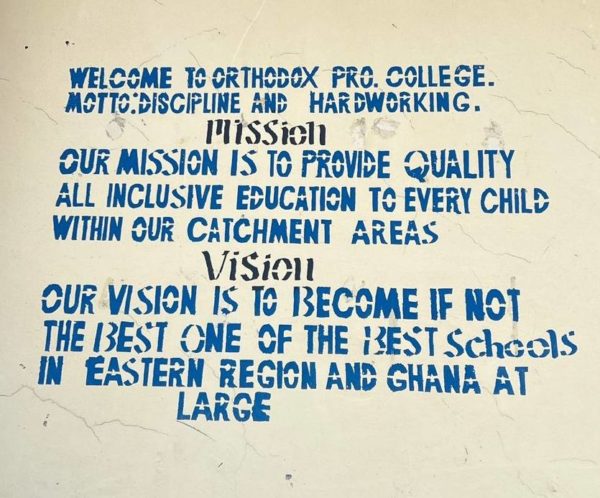 WELCOME TO ORTHODOX PRO. COLLEGE.
MOTTO:DISCIPLINE AND HARDWORKING.
Mission
OUR MISSION IS TO PROVIDE QUALITY
ALL INCLUSIVE EDUCATION TO EVERY CHILD
WITHIN OUR CATCHMENT AREAS
Vision
OUR VISION IS TO BECOME IF NOT
THE BEST ONE OF THE BEST Schools
IN EASTERN REGION AND GHANA AT
LARGE